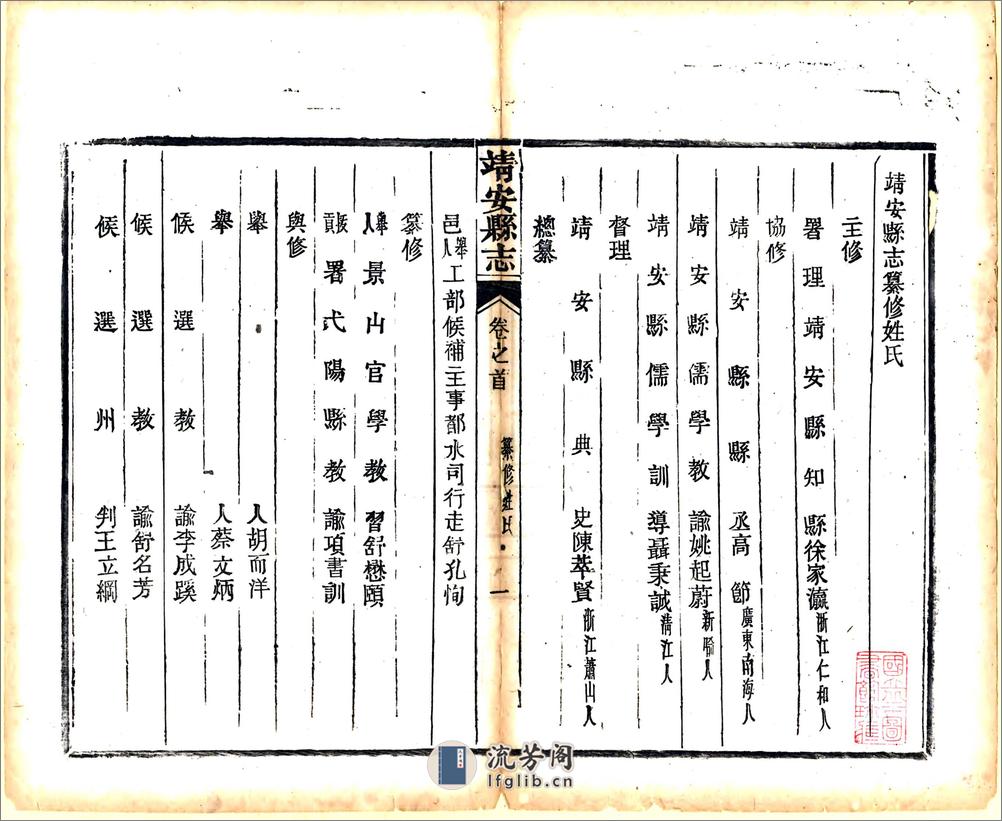 靖安縣志纂修姓氏
主修
署理靖安縣知縣徐家瀛浙江仁和人
協修
靖安縣縣丞高節廣東南海人
靖安縣儒學教諭姚起蔚新喻人
靖安縣儒學訓導聶秉誠清江人
督理
靖安縣典史陳萃賢浙江蕭山人
總纂
邑舉人工部候補主事都水司行走舒孔恂
纂修
舉人景山官學教習舒懋頤
拔貢署弋陽縣教諭項書訓
與修
舉人胡而洋
舉人蔡文炳
候選教諭李成蹊
候選教諭舒名芳
候選州判王立綱
靖安縣志
卷之首
纂修姓氏
一
流芳阁
lfglib.cn